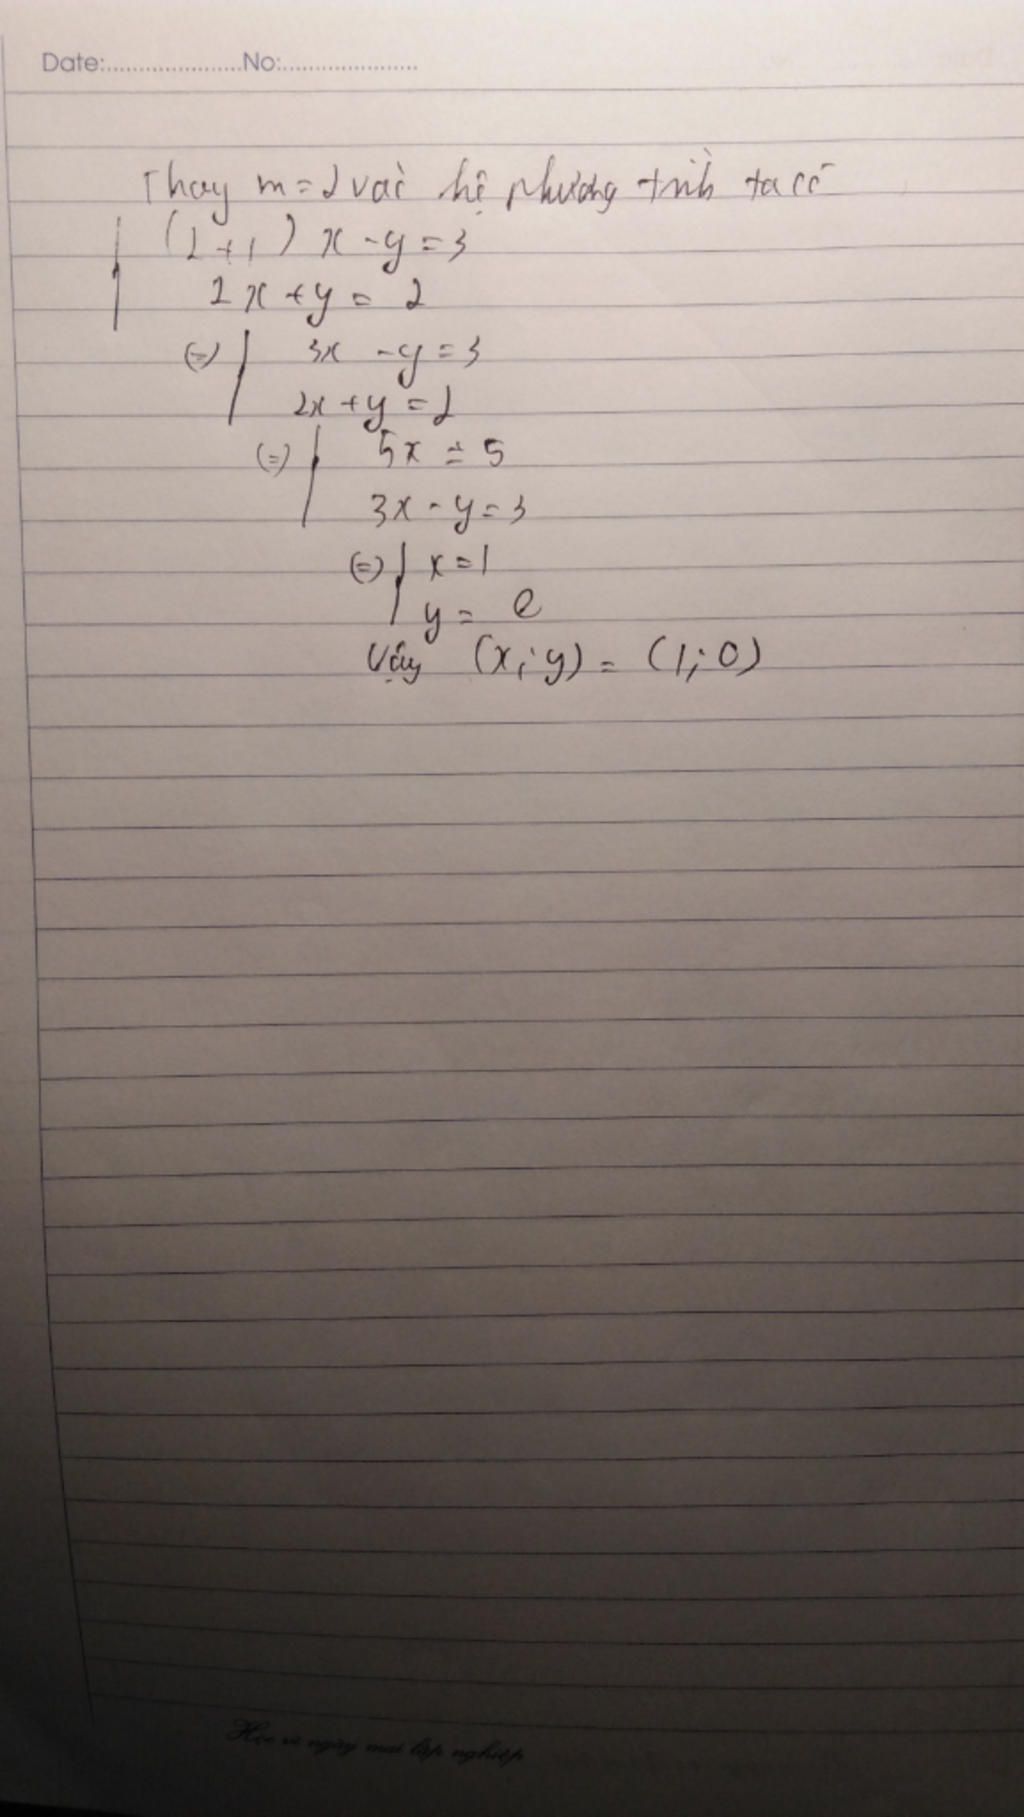 Date:.....................No:.....................
Thay m = 2 vào hệ phương trình ta có
(2+1) x - y = 3
2x + y = 2
(=) 3x - y = 3
2x + y = 2
(=) 5x = 5
3x - y = 3
(=) x = 1
y = 0
Vậy (x; y) = (1; 0)
Học vì ngày mai lập nghiệp